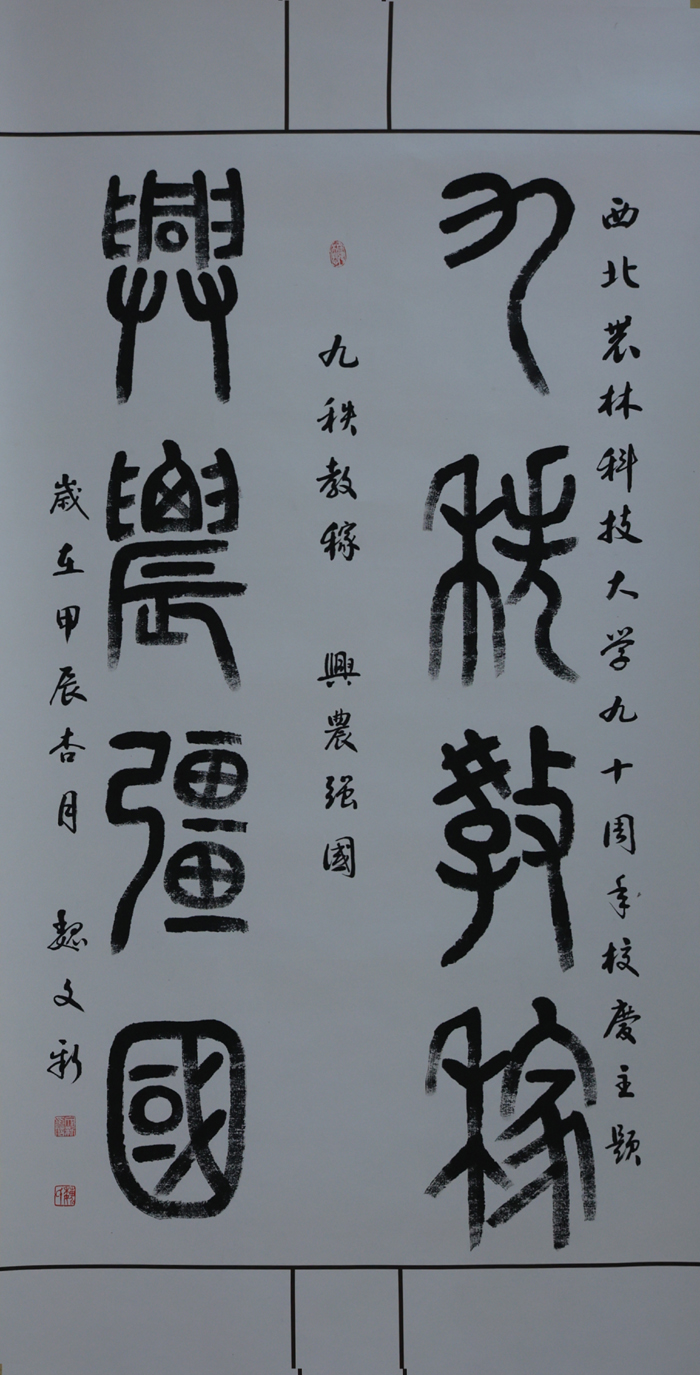 西北農林科技大学九十周年校慶主題
九秩教稼
九秩教稼 興農強國
興農彊國
歲在甲辰杏月 魏文彩